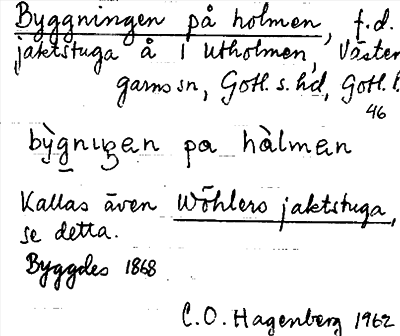 Byggningen på holmen, f.d.
jaktstuga å I Utholmen, Väster
garns sn, Gotl. s. hd, Gotl. l.
46
bỳgnıŋen pa hàlmen
Kallas även Wöhlers jaktstuga,
se detta.
Byggdes 1868
C.O. Hagenberg 1962